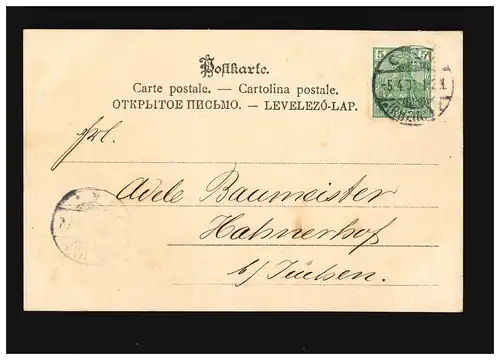 Postkarte.
Carte postale. — Cartolina postale.
ОТКРЫТОЕ ПИСЬМО. — LEVELEZŐ-LAP.
5 5
-5.4.
(RHEIN)
Frl.
Adele Baumeister
Hahnerhof
b/ Jüchen.